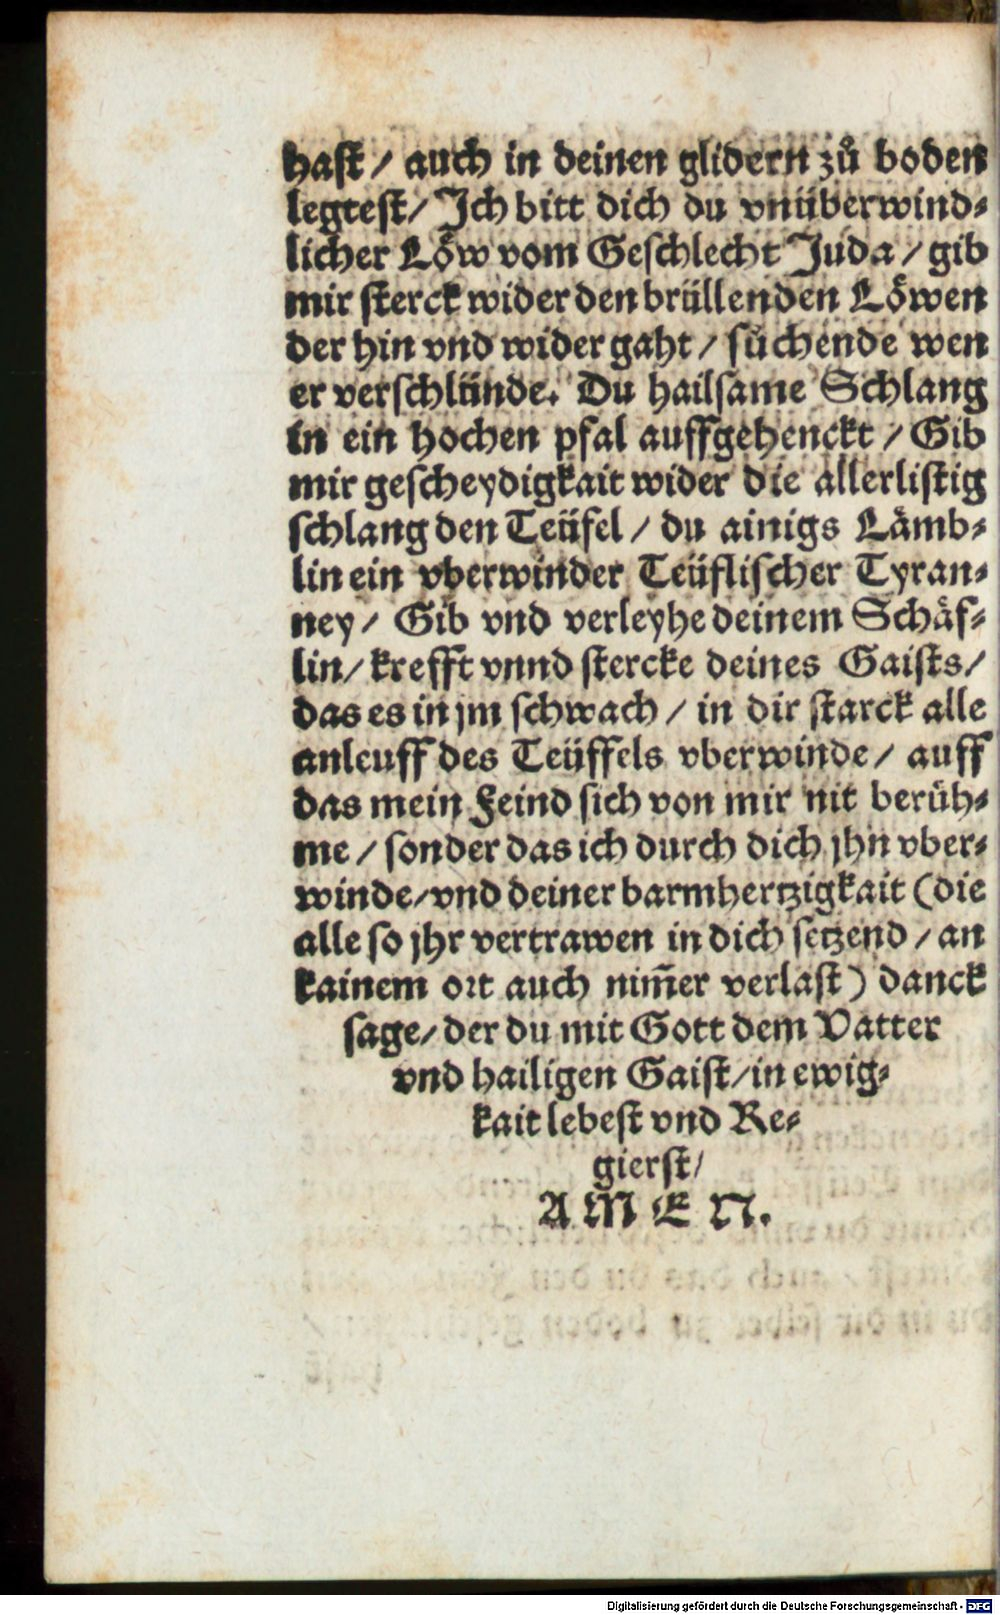 hast / auch in deinen glidern zů boden
legtest / Ich bitt dich du vnüberwind⸗
licher Löw vom Geschlecht Juda / gib
mir sterck wider den brüllenden Löwen
der hin vnd wider gaht / sůchende wen
er verschlünde. Du hailsame Schlang
in ein hochen pfal auffgehenckt / Gib
mir gescheydigkait wider die allerlistig
schlang den Teüfel / du ainigs Lämb⸗
lin ein vberwinder Teüflischer Tyran⸗
ney / Gib vnd verleyhe deinem Schäf⸗
lin / krefft vnnd stercke deines Gaists /
das es in jm schwach / in dir starck alle
anleuff des Teüffels vberwinde / auff
das mein Feind sich von mir nit berüh⸗
me / sonder das ich durch dich jhn vber⸗
winde / vnd deiner barmhertzigkait (die
alle so jhr vertrawen in dich setzend / an
kainem ort auch nim̃er verlast) danck
sage / der du mit Gott dem Vatter
vnd hailigen Gaist / in ewig⸗
kait lebest vnd Re⸗
gierst /
AMEN.
Digitalisierung gefördert durch die Deutsche Forschungsgemeinschaft - DFG